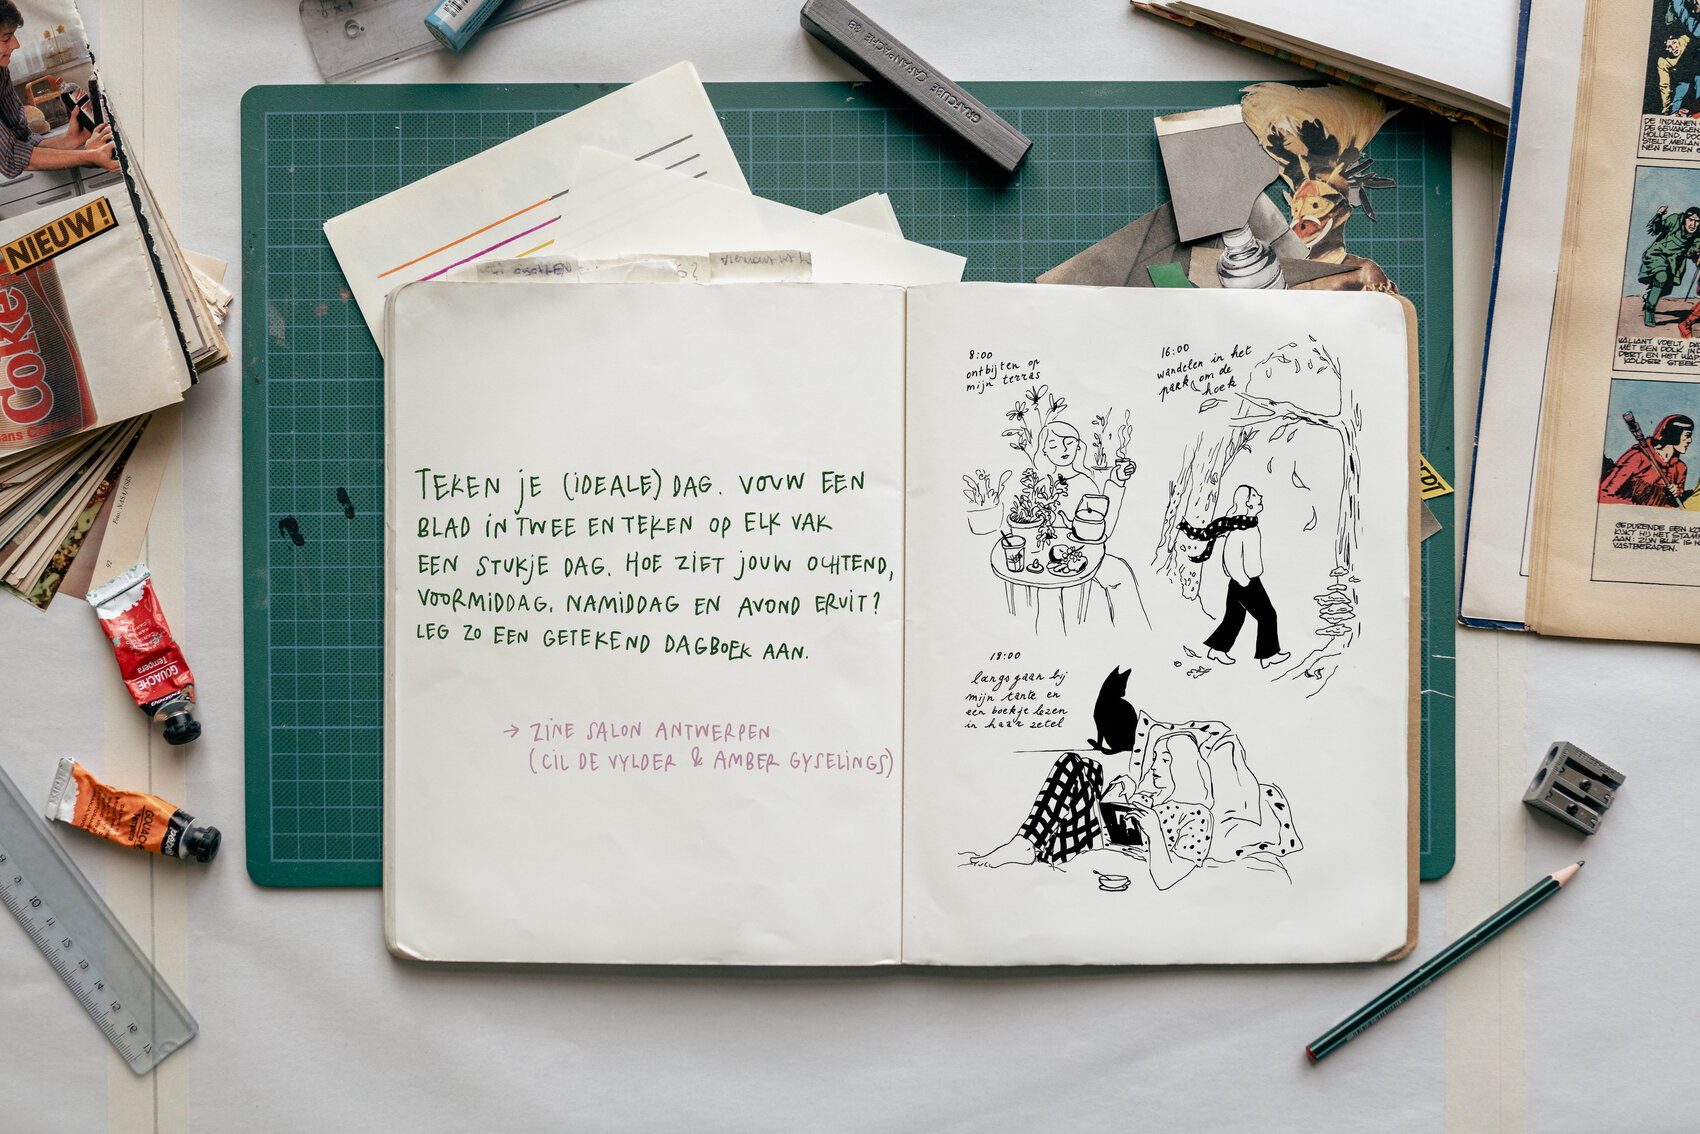 NIEUW!
Coke
GRAFCUBE CARAN D'ACHE 8B
TEKEN JE (IDEALE) DAG. VOUW EEN
BLAD IN TWEE EN TEKEN OP ELK VAK
EEN STUKJE DAG. HOE ZIET JOUW OCHTEND,
VOORMIDDAG, NAMIDDAG EN AVOND ERUIT?
LEG ZO EEN GETEKEND DAGBOEK AAN.
→ ZINE SALON ANTWERPEN
(CIL DE VYLDER & AMBER GYSELINGS)
8:00
ontbijten op
mijn terras
16:00
wandelen in het
park om de
hoek
18:00
langs gaan bij
mijn tante en
een boekje lezen
in haar zetel
GOUACHE
Tempera
GOUACHE
Tempera
8
9
10
11
12
13
14
15
16
17
92
DE INDIANEN
DE GEVANGEN
HOLLEND, DOO
STELT MEILAN
NEN BUITEN
VALIANT VOELT, DA
MET EEN DOLK IN
DERT, EN HET WAP
KOLDER STEEK
GEDURENDE EEN KO
KIJKT HIJ HET STAM
AAN: ZIJN BLIK IS H
VASTBERADEN.